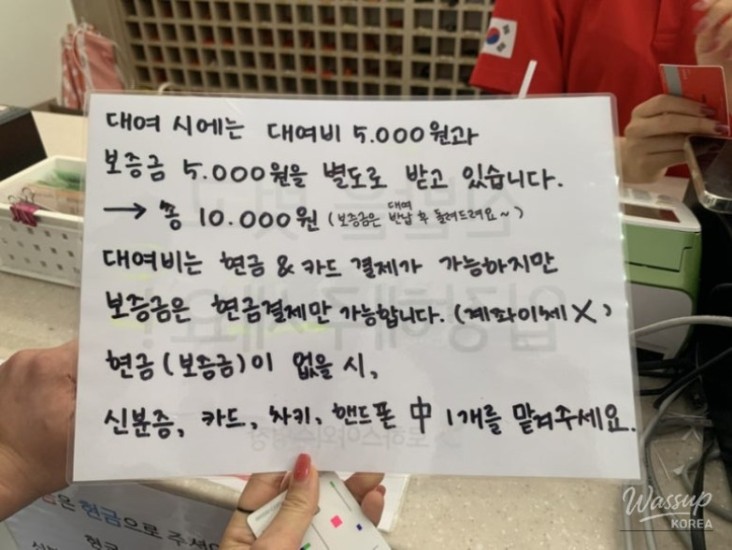 대여 시에는 대여비 5.000원과
보증금 5.000원을 별도로 받고 있습니다.
→ 총 10.000원 (보증금은 대여 반납 후 돌려드려요~)
대여비는 현금 & 카드 결제가 가능하지만
보증금은 현금결제만 가능합니다. (계좌이체 X)
현금(보증금)이 없을 시,
신분증, 카드, 차키, 핸드폰 中 1개를 맡겨주세요.
현금으로
Wassup
KOREA